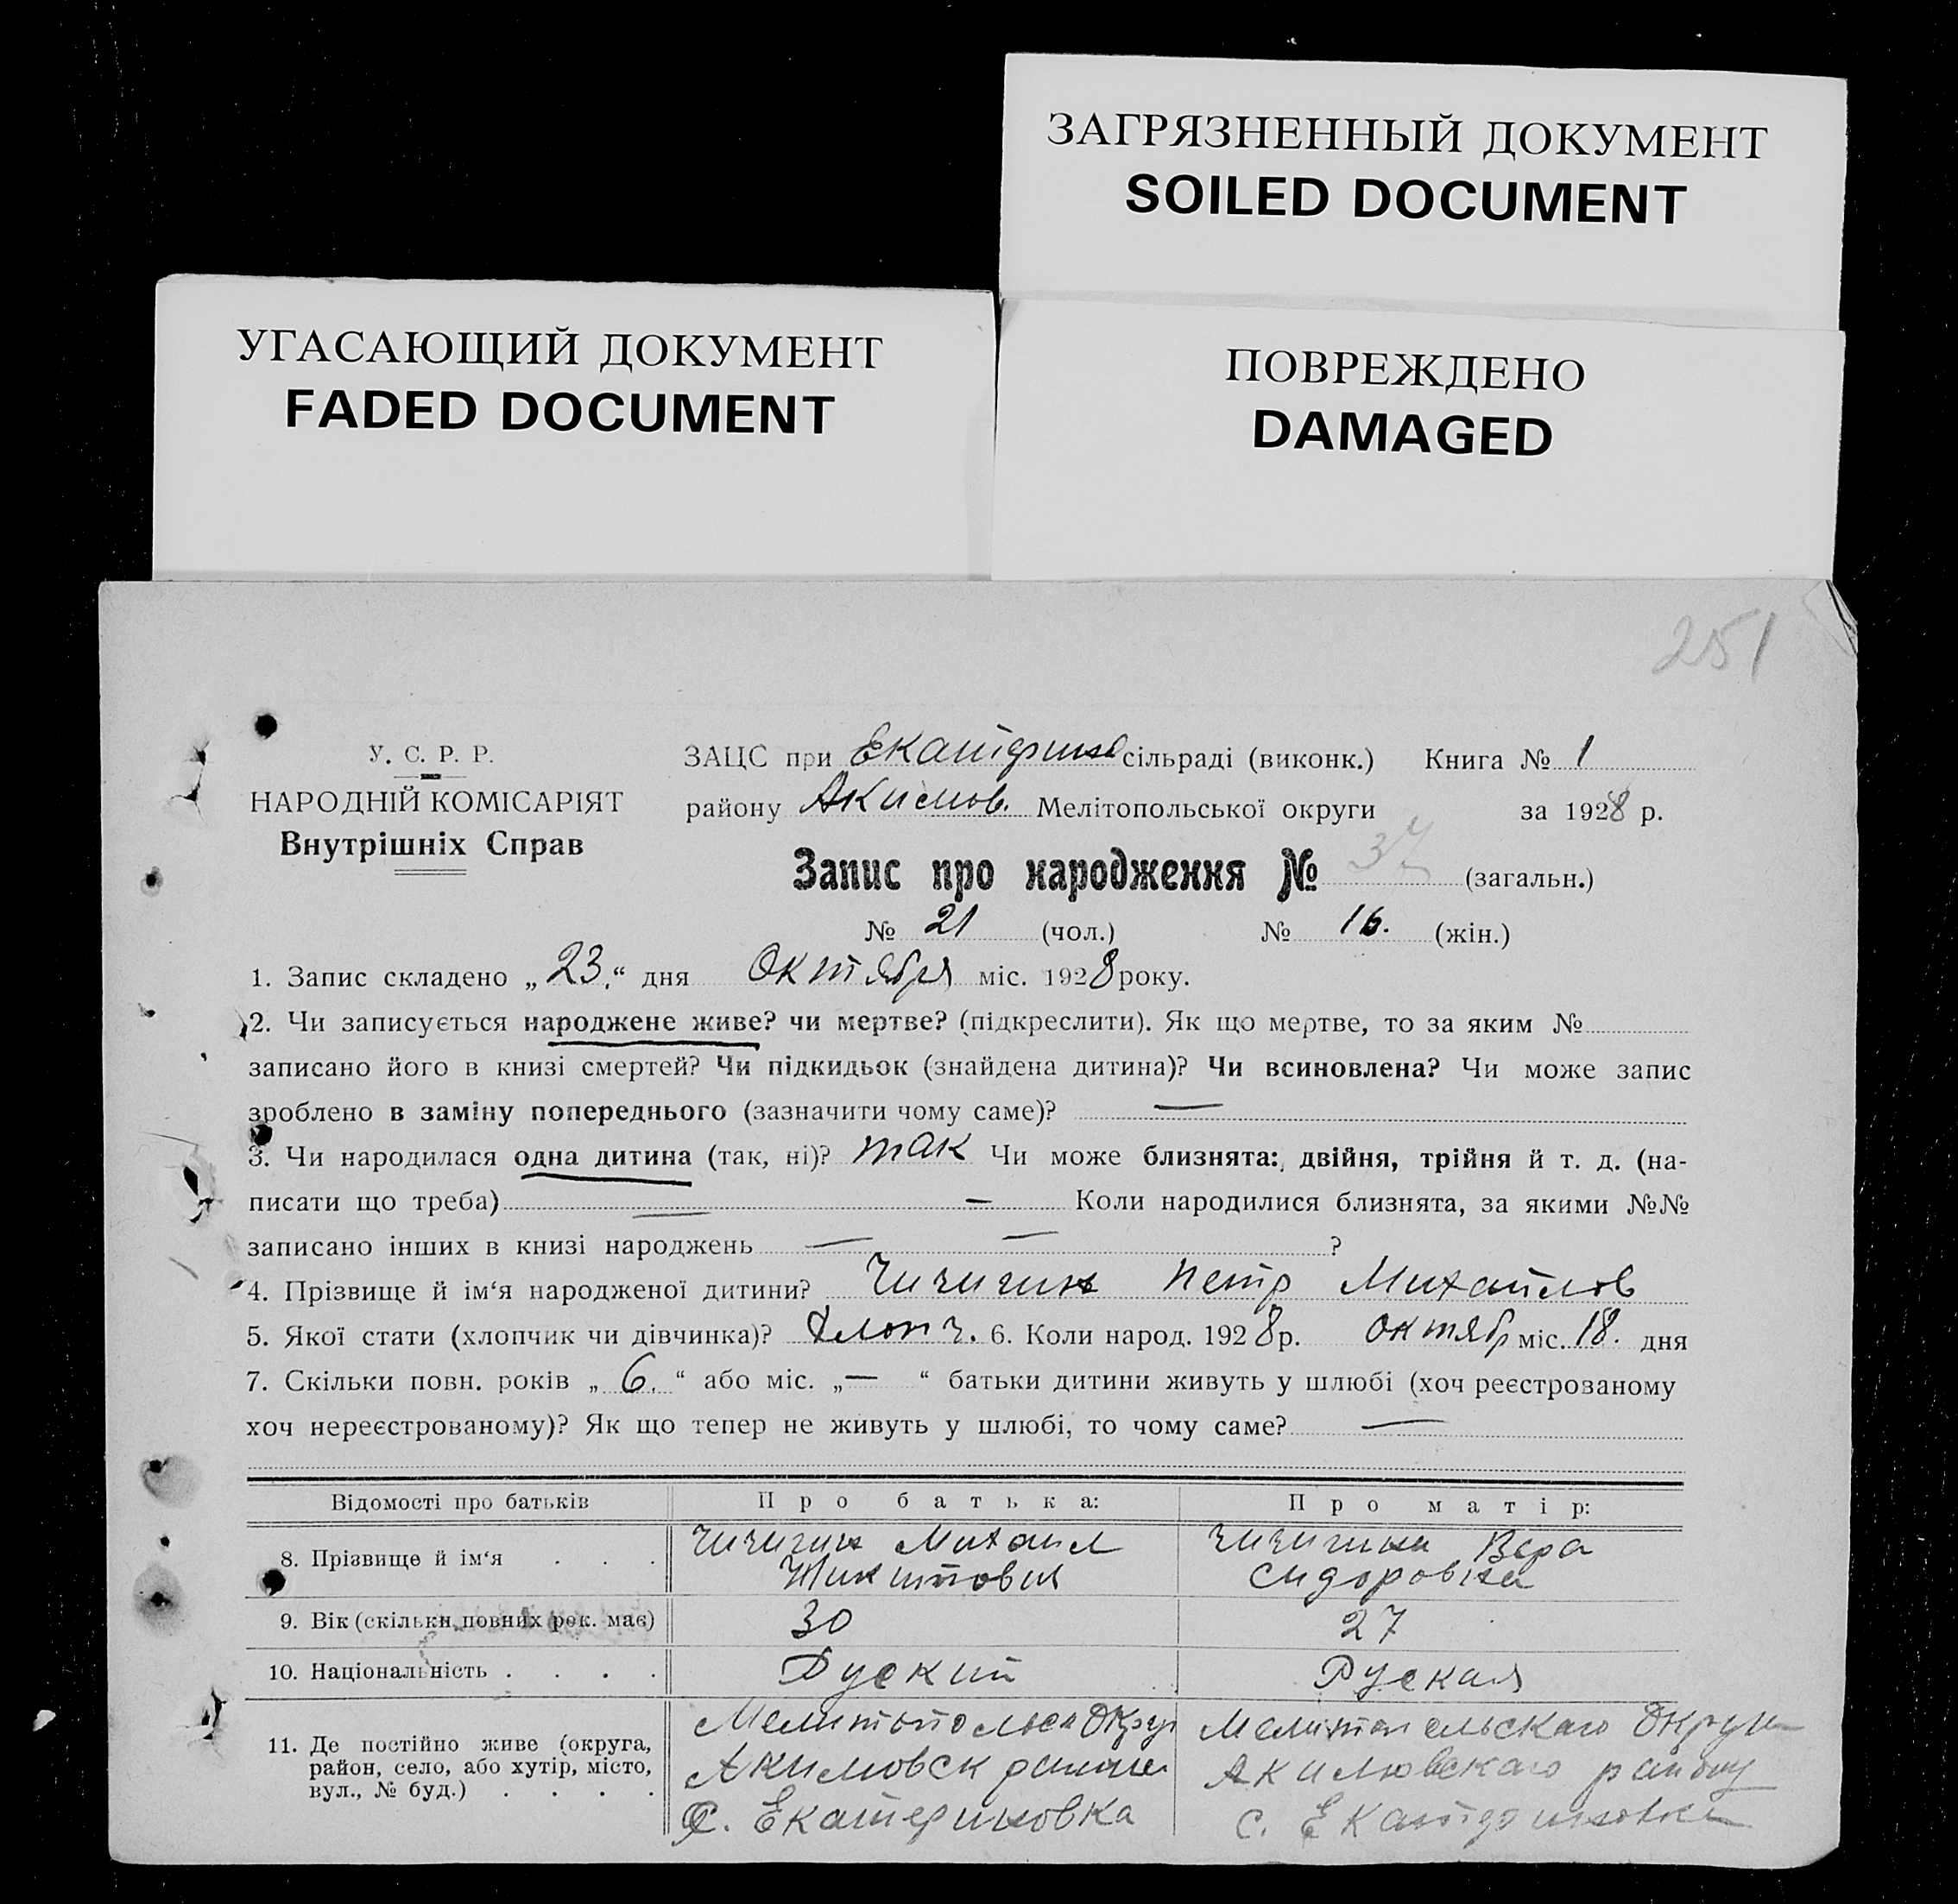 ЗАГРЯЗНЕННЫЙ ДОКУМЕНТ
SOILED DOCUMENT
УГАСАЮЩИЙ ДОКУМЕНТ
FADED DOCUMENT
ПОВРЕЖДЕНО
DAMAGED
251
У. С. Р. Р.
НАРОДНІЙ КОМІСАРІЯТ
Внутрішніх Справ
ЗАЦС при сільраді (виконк.) Книга № 1
району Акимов. Мелітопольської округи за 1928 р.
Запис про народження № 37 (загальн.)
№ 21 (чол.) № 16. (жін.)
1. Запис складено „23.“ дня Октября міс. 1928 року.
2. Чи записується народжене живе? чи мертве? (підкреслити). Як що мертве, то за яким №
записано його в книзі смертей? Чи підкидьок (знайдена дитина)? Чи всиновлена? Чи може запис
зроблено в заміну попереднього (зазначити чому саме)? —
3. Чи народилася одна дитина (так, ні)? так Чи може близнята: двійня, трійня й т. д. (на-
писати що треба) — — Коли народилися близнята, за якими №№
записано інших в книзі народжень — — ?
4. Прізвище й ім‘я народженої дитини? Чичигин Петр Михайлов
5. Якої стати (хлопчик чи дівчинка)? Хлопч. 6. Коли народ. 1928 р. октябр міс. 18. дня
7. Скільки повн. років „6.“ або міс. „—“ батьки дитини живуть у шлюбі (хоч реєстрозаному
хоч нереєстрованому)? Як що тепер не живуть у шлюбі, то чому саме? —
Відомості про батьків Про батька: Про матір:
8. Прізвище й ім‘я . . . Чичигин Михаил Чичигина Вера
Сидоровна
9. Вік (скільки повних рок. має) 30 27
10. Національність . . . . Руский Руская
11. Де постійно живе (округа, район, село, або хутір, місто, вул., № буд.) . . . .
Мелитопольскаго Округа
Акимовск Акимовскаго району
С. Екатериновка с. Екатериновка